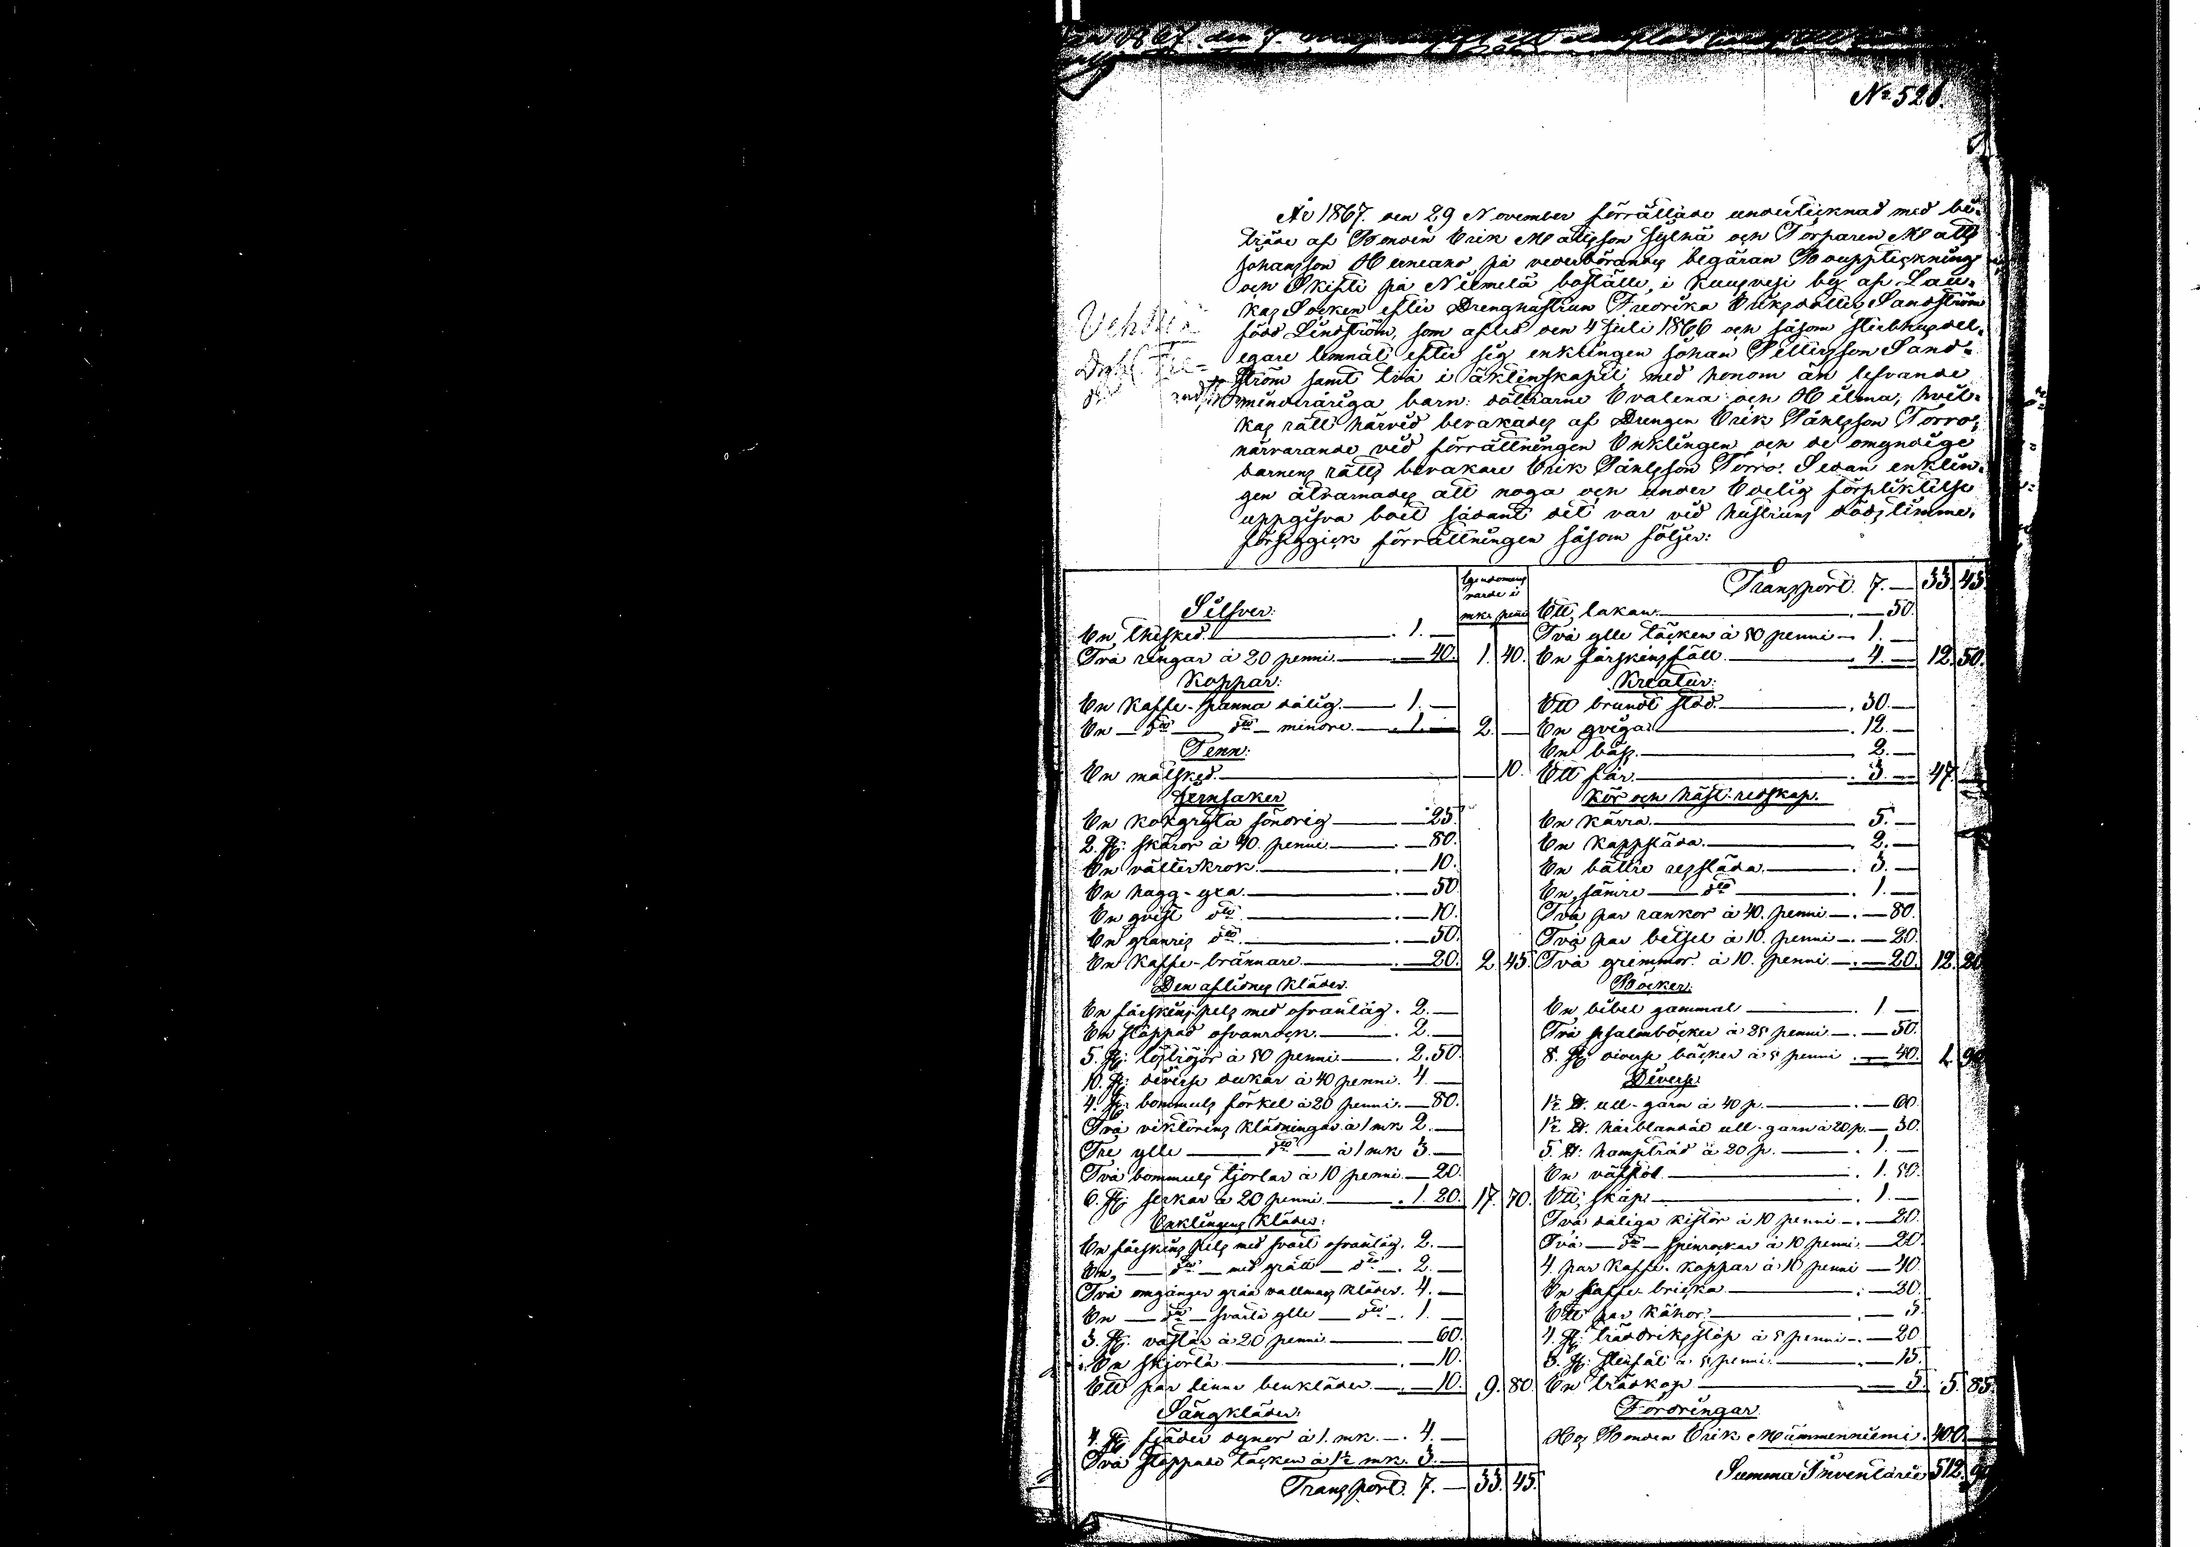 No 526.
År 1867. den 29 November förrättade undertecknad med bi-
träde af Bonden Erik Matsson och Torparen Matts
Johansson på vederbörandes begäran Bouppteckning
och Skifte på Niemelä boställe, i Kuusvesi by af Lau-
kas Socken efter Drenghustrun Fredrika Eriksdotter Sandström
född Lindström, som afled den 4 Juli 1866 och såsom sterbhusdel-
egare lemnat efter sig enklingen Johan Pettersson Sand-
ström samt två i äktenskapet med honom än lefvande
minderåriga barn: döttrarne Evalena och Hilma, hvil-
kas rätt härvid bevakades af Drengen Erik Påhlsson Torro,
närvarande vid förrättningen Enklingen och de omyndige
barnens rätts bevakare Erik Påhlsson Torro. Sedan enklin-
gen åtvarnades att noga och under Edelig förpliktelse
uppgifva boet sådant det var vid hustruns dödstimme,
försiggick förrättningen såsom följer:
Egendomens
värde i
mkr penni
Silfver:
En thesked 1. —
Två ringar à 20 penni — 40. 1. 40.
Koppar:
En Kaffe-panna dålig 1. —
En — dito — dito — mindre 1. — 2. —
Tenn:
En matsked — 10.
Jernsaker
En kokgryta söndrig — 25.
2. st: skäror à 40. penni — 80.
En vätterkrok — 10.
En hugg-yxa — 50
En qvist dito — 10.
En granris dito — 50.
En Kaffe-brännare — 20. 2. 45.
Den aflidnes kläder.
En fårskins pels med ofvantåg. 2. —
En stoppad ofvanrock 2. —
5. st: töjtröjor à 50 penni 2. 50.
10. st: diverse dukar à 40 penni. 4. —
4. st: bommuls förkel à 20 penni. — 80.
Två klädningar à 1 mk 2. —
Tre ylle — dito — à 1 mk 3. —
Två bommuls tjortar à 10 penni — 20.
6. st: serkar à 20 penni 1. 20. 17. 70.
Enklingens kläder:
En fårskins pels med svart ofvantåg. 2. —
En, — dito — med grått — dito —. 2. —
Två omgånger gråa vallmars kläder. 4. —
En — dito — svarta ylle — dito —. 1. —
3. st: västar à 20 penni — 60.
En skjorta — 10.
Ett par linne benkläder — 10. 9. 80
Sängkläder:
4. st: fjäder dynor à 1. mk. 4. —
Två stoppade täcken à 1½ mk. 3. —
Transport. 7. — 33. 45.
Transport. 7. — 33. 45.
Ett, lakan — 50.
Två ylle täcken à 50 penni 1. —
En fårskinsfäll 4. — 12. 50.
Kreatur:
Ett brunt stod. 30. —
En qviga 12. —
En 2. —
Ett får 3. — 47. —
Kör och häst-redskap.
En kärra 5. —
En kappsläda 2. —
En bättre ressläda 3. —
En, sämre — dito 1. —
Två par rankor à 40. penni — 80.
Två par betsel à 10. penni — 20.
Två grimmor à 10. penni — 20. 12. 20
Böcker:
En bibel gammal 1 —
Två psalmböcker à 25 penni — 50.
8. st: diverse böcker à 5 penni — 40. 1. 90
Diverse:
1½ ℔. ull-garn à 40 p. — 60.
1½ ℔. hårblandat ull-garn à 20 p. — 30.
5. ℔: hamptråd à 20 p. 1. —
En väfstol 1. 50.
Ett, skåp 1. —
Två dåliga kistor à 10 penni — 20.
Två — dito — spinrockar à 10 penni — 20.
4. par kaffe-koppar à 10 penni — 40.
En kaffe-bricka — 20.
Ett par — 5.
4. st: trädriksstop à 5 penni — 20
3. st: stenfat à 5 penni — 15.
En trädkopp — 5. 5. 85.
Fordringar
Hos Bonden Erik Mämmenniemi. 400. —
Summa Inventarii 512. 90